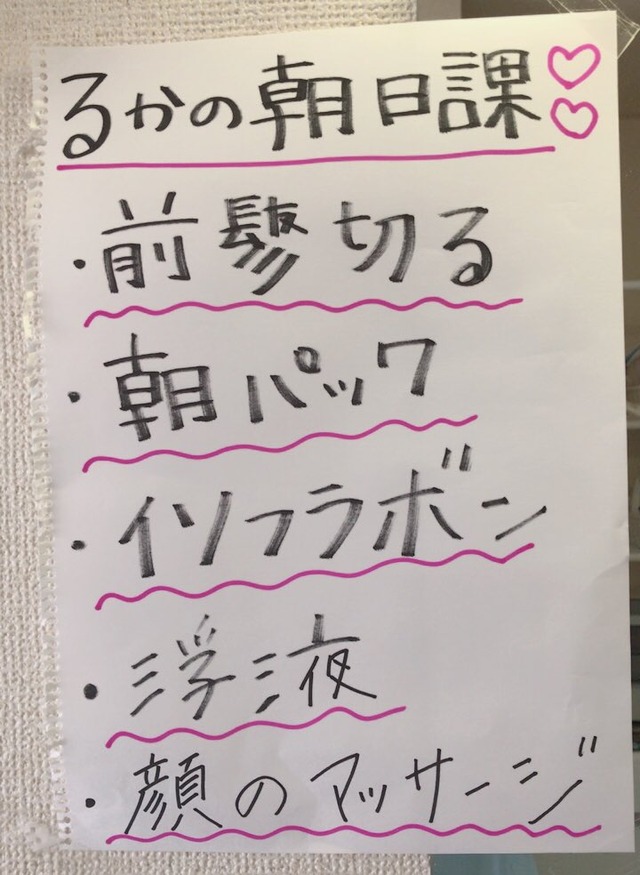 るかの朝日課♡♡
・前髪切る
・朝パック
・イソフラボン
・浮液
・顔のマッサージ